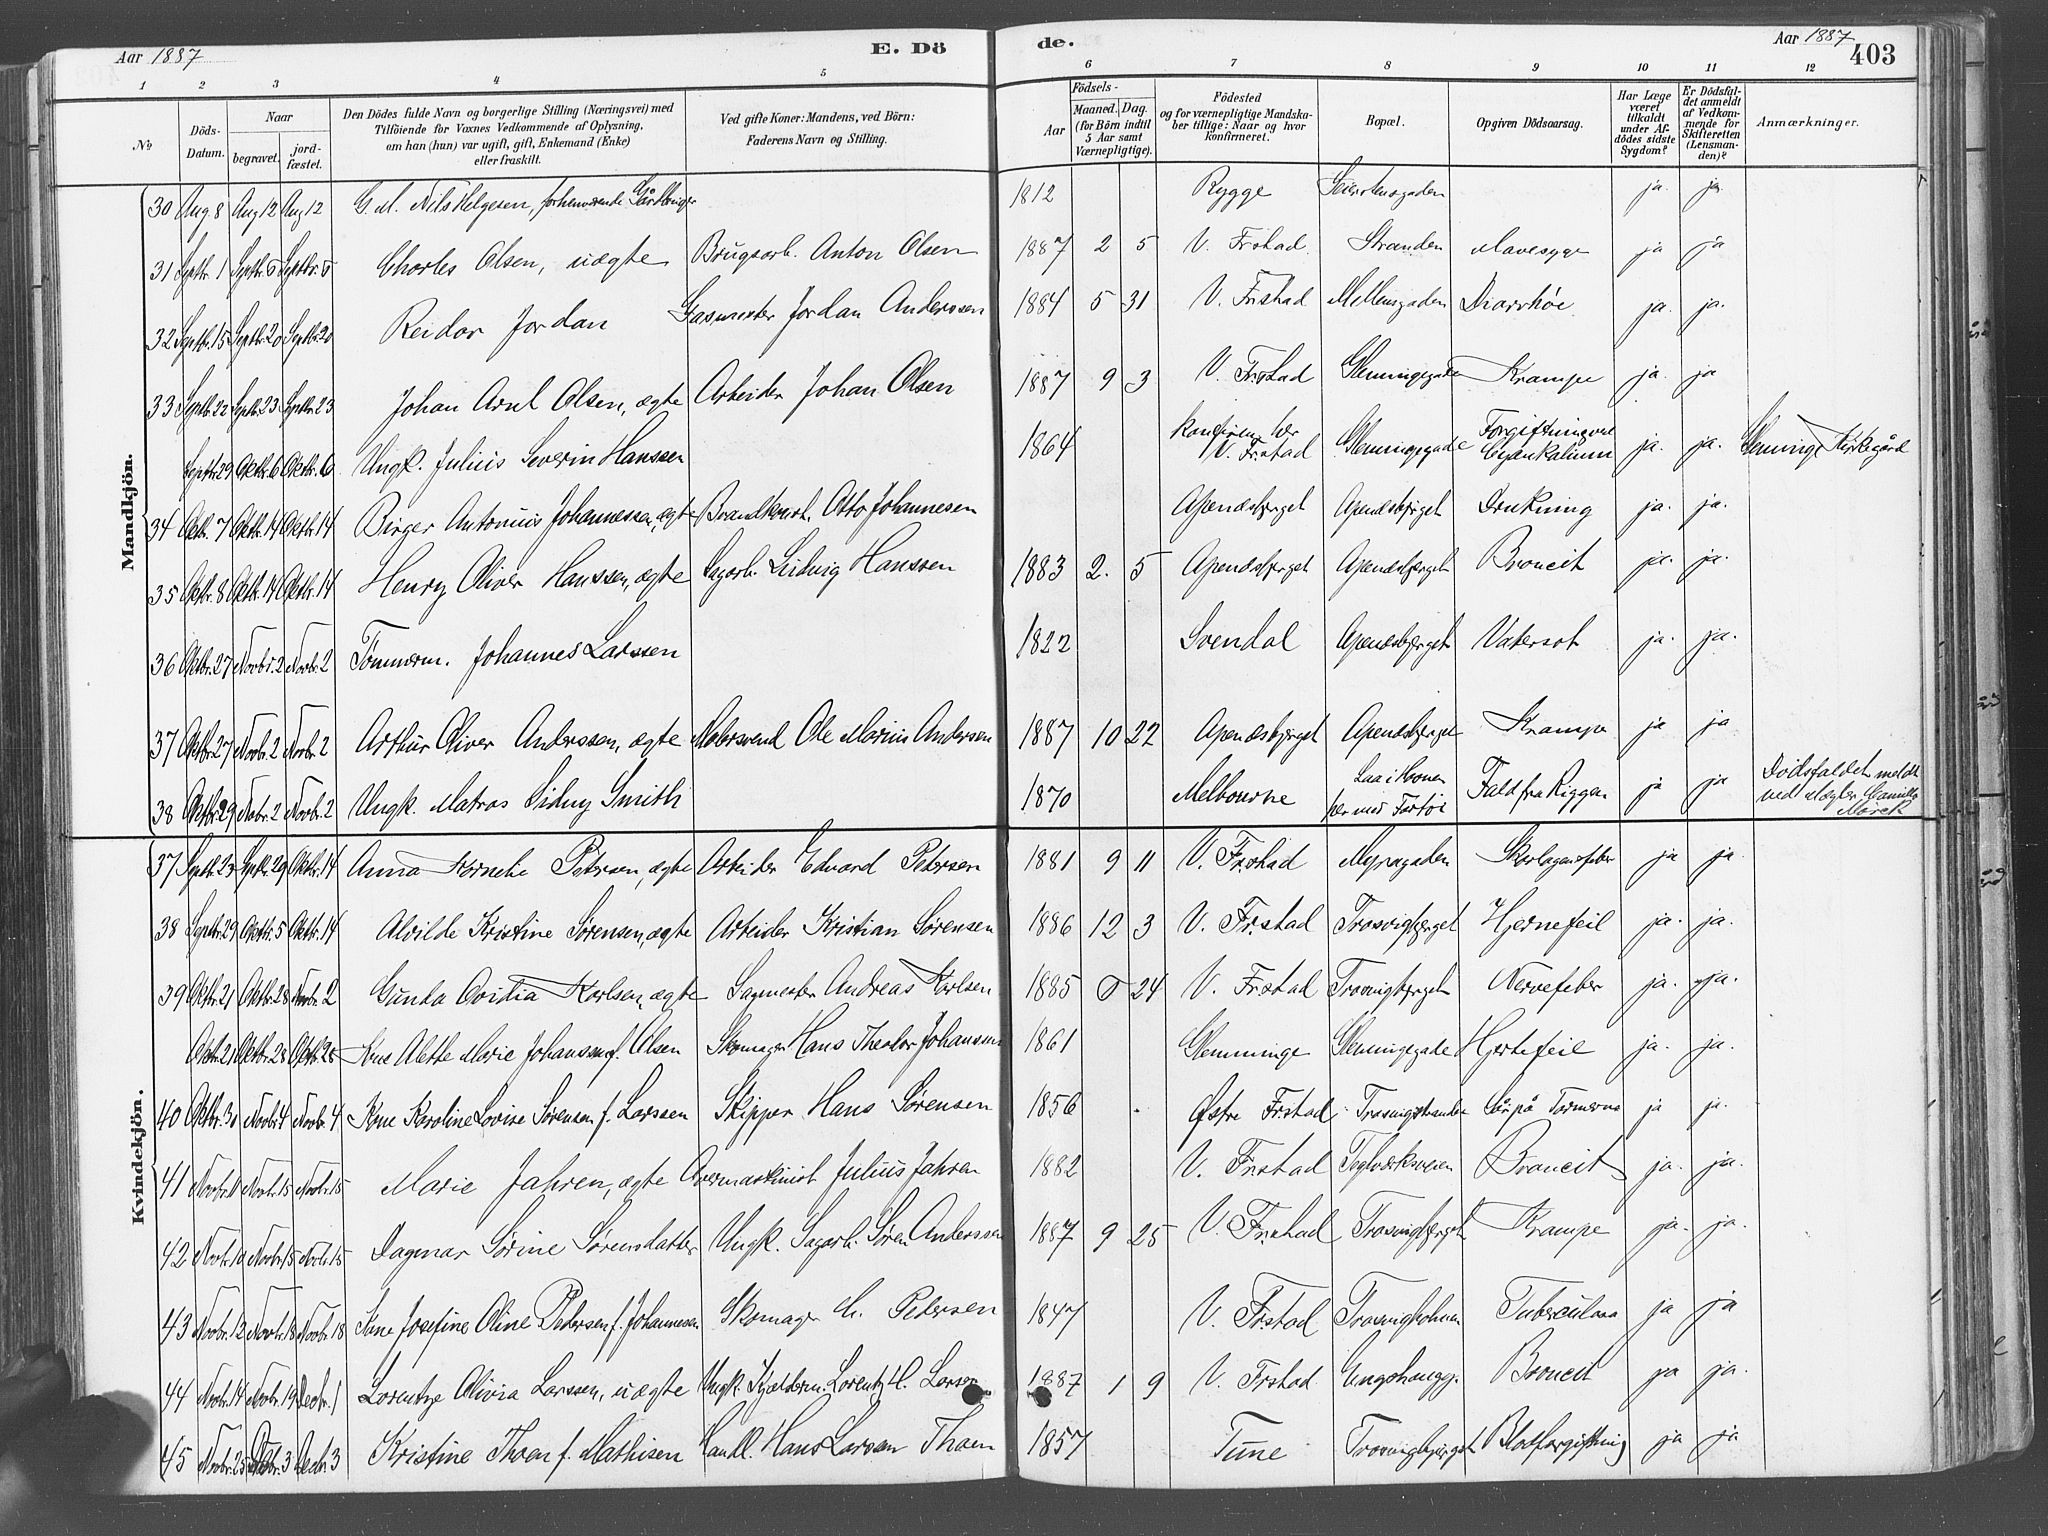 Aar 1887 E. Dö de. Aar 1887 403
1 2 3 4 5 6 7 8 9 10 11 12
No Döds-Datum. Naar begravet. jordfæstet. Den Dödes fulde Navn og borgerlige Stilling (Næringsvei) med Tilföiende for Voxnes Vedkommende af Oplysning, om han (hun) var ugift, gift, Enkemand (Enke) eller fraskilt. Ved gifte Koner: Mandens, ved Börn: Faderens Navn og Stilling. Aar Födsels- Maaned. Dag. (for Börn indtil 5 Aar samt Værnepligtige). Födested og for værnepligtige Mandskaber tillige: Naar og hvor konfirmeret. Bopæl. Opgiven Dödsaarsag. Har Læge været tilkaldt under Afdödes sidste Sygdom? Er Dödsfaldet anmeldt af Vedkommende for Skifteretten (Lensmanden)? Anmærkninger.
Mandkjön.
30 Aug 8 Aug 12 Aug 12 G. M. Nils Helgesen, forhenværende 1812 Rygge ja. ja.
31 Septbr. 1 Septbr. 5 Septbr. 5 Charles Olsen, uægte Brugsarb. Anton Olsen 1887 2 5 V. Frstad. Stranden Mavesyge ja ja
32 Septbr. 15 Septbr. 20 Septbr. 20 Reidar Jordan Gasmester Jordan Anderssen 1884 5 31 V. Frstad Mellemgaden Diarrhöe ja. ja.
33 Septbr. 22 Septbr. 23 Septbr. 23 Johan Arnt Olsen, ægte Arbeider Johan Olsen 1887 9 3 V. Frstad Glemmingegade Krampe ja. ja
Septbr. 29 Oktbr. 6 Oktbr. 6 Ungk. Julius Severin Hanssen 1864 konfirm. her V. Frstad Glemmingegade Forgiftning ved Cyankalium ja. ja. Glemminge Kirkegård
34 Oktbr. 7 Oktbr. 14 Oktbr. 14 Birger Antonius Johannessen, ægte Otto Johannesen Apenæsbjerget Apenæsbjerget Drukning ja. ja.
35 Oktbr. 8 Oktbr. 14 Oktbr. 14 Henry Oliver Hanssen, ægte Sagarb. Ludvig Hanssen 1883 2. 5 Apenæsbjerget Apenæsbjerget Broncit ja. ja.
36 Oktbr. 27 Novbr. 2 Novbr. 2 Tömmerm. Johannes Larssen 1822 Svendal Apenæsbjerget Vatersot ja. ja.
37 Oktbr. 27 Novbr. 2 Novbr. 2 Arthur Oliver Anderssen, ægte Malersvend Ole Marius Andersen 1887 10 22 Apenæsbjerget Apenæsbjerget Krampe ja ja
38 Oktbr. 29 Nobr. 2 Novbr. 2 Ungk. Matros Sidny Smith 1870 Melbourne Laa i Havnen her med Fartöi Fald fra Riggen ja ja Dödsfaldet meldt ved Mægler Camillo
Kvindekjön.
37 Septbr. 23 Septbr. 29 Oktbr. 14 Anna Kornelie Petersen, ægte Arbeider Edvard Petersen 1881 9 11 V. Frstad Myragaden Skarlagensfeber ja ja.
38 Septbr. 29 Oktbr. 5 Oktbr. 14 Alvilde Kristine Sørensen, ægte Arbeider Kristian Sørensen 1886 12 3 V. Frstad Trosvigbjerget Hjernefeil ja. ja.
39 Oktbr. 21 Oktbr. 28 Novbr. 2 Gunda Ovidia Karlsen, ægte Sagmester Andreas Karlsen 1885 24 V. Frstad Trosvigbjerget Nervefeber ja. ja.
Oktbr. 21 Oktbr. 28 Oktbr. 28 Kone Alette Marie Johanssen f. Olsen Skomager Hans Theodor Johansen 1861 Glemminge Glemmingegade Hjertefeil ja. ja.
40 Oktbr. 30 Novbr. 4 Novbr. 4 Kone Karoline Lovise Sørensen f. Larssen Skipper Hans Sørensen 1856 Østre Frstad Trosvigstranden Sår på Tarmerne ja ja.
41 Novbr. 10 Novbr. 15 Novbr. 15 Marie Jahren, ægte Overmaskinist Julius Jahren 1882 V. Frstad Teglværksveien Broncit ja. ja.
42 Novbr. 10 Novbr. 15 Novbr. 15 Dagmar Sörine Sörensdatter Ungk. Sagarb. Sören Anderssen 1887 9 25 V. Frstad Trosvigbjerget Krampe ja. ja.
43 Novbr. 12 Novbr. 18 Novbr. 18 Kone Josefine Oline Petersen f. Johannesen Skomager Petersen 1847 V. Frstad Trosvigholmen Tuberculose ja ja
44 Novbr. 14 Novbr. 19 Decbr. 1 Lorentze Olivia Larssen, uægte Ungk. Kjælderm. Lorentz H. Larsen 1887 1 9 V. Frstad Broncit ja ja.
45 Novbr. 25 Decbr. 3 Decbr. 3 Kristine Thoen f. Mathisen Handl. Hans Larsen Thoen 1857 Tune Trosvigbjerget Blodforgiftning ja ja